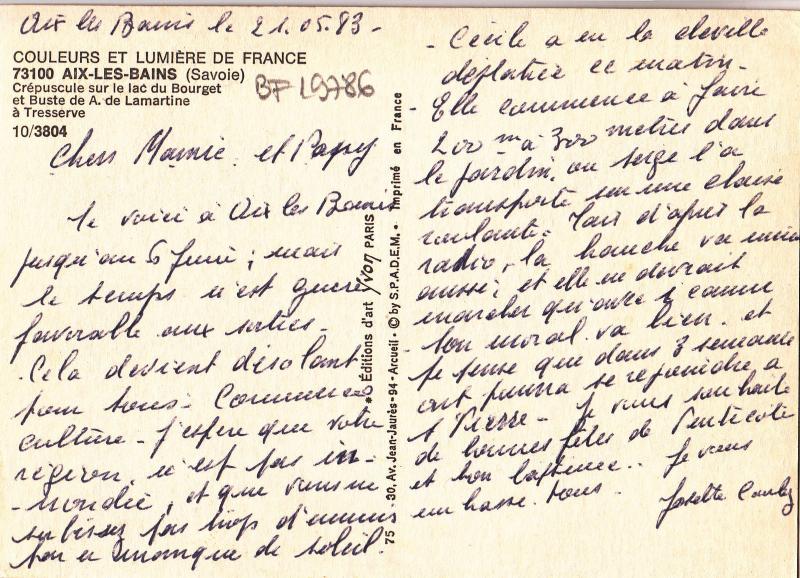 Aix les Bains le 21.05.83 -
COULEURS ET LUMIÈRE DE FRANCE
73100 AIX-LES-BAINS (Savoie)
Crépuscule sur le lac du Bourget
et Buste de A. de Lamartine
à Tresserve
10/3804
BF 19786
Chers Mamie et Papy
le voici à Aix les Bains
jusqu'au 6 Juin ; mais
le temps n'est guère
favorable aux sorties.
Cela devient désolant
pour tous. Commerce
culture - J'espère que votre
région n'est pas in-
-nondée, et que vous ne
subissez pas trop d'ennuis
par ce manque de soleil.
* Éditions d'art yvon PARIS
75 30, Av. Jean-Jaurès - 94 - Arcueil • © by S.P.A.D.E.M. • Imprimé en France
- Cécile a eu la cheville
déplatrée ce matin -
- Elle commence à faire
200 m à 300 mètres dans
le jardin, où Serge l'a
transportée sur une chaise
roulante. Tout d'après la
radio, la hanche va mieux
aussi, et elle ne devrait
marcher qu'avec 1 canne
- Son moral va bien. et
je pense que dans 3 semaines
ont pourra se rejoindre à
St Pierre - Je vous souhaite
de bonnes fêtes de Pentecôte
et bon baptême.. Je vous
embrasse. tous.
Josette